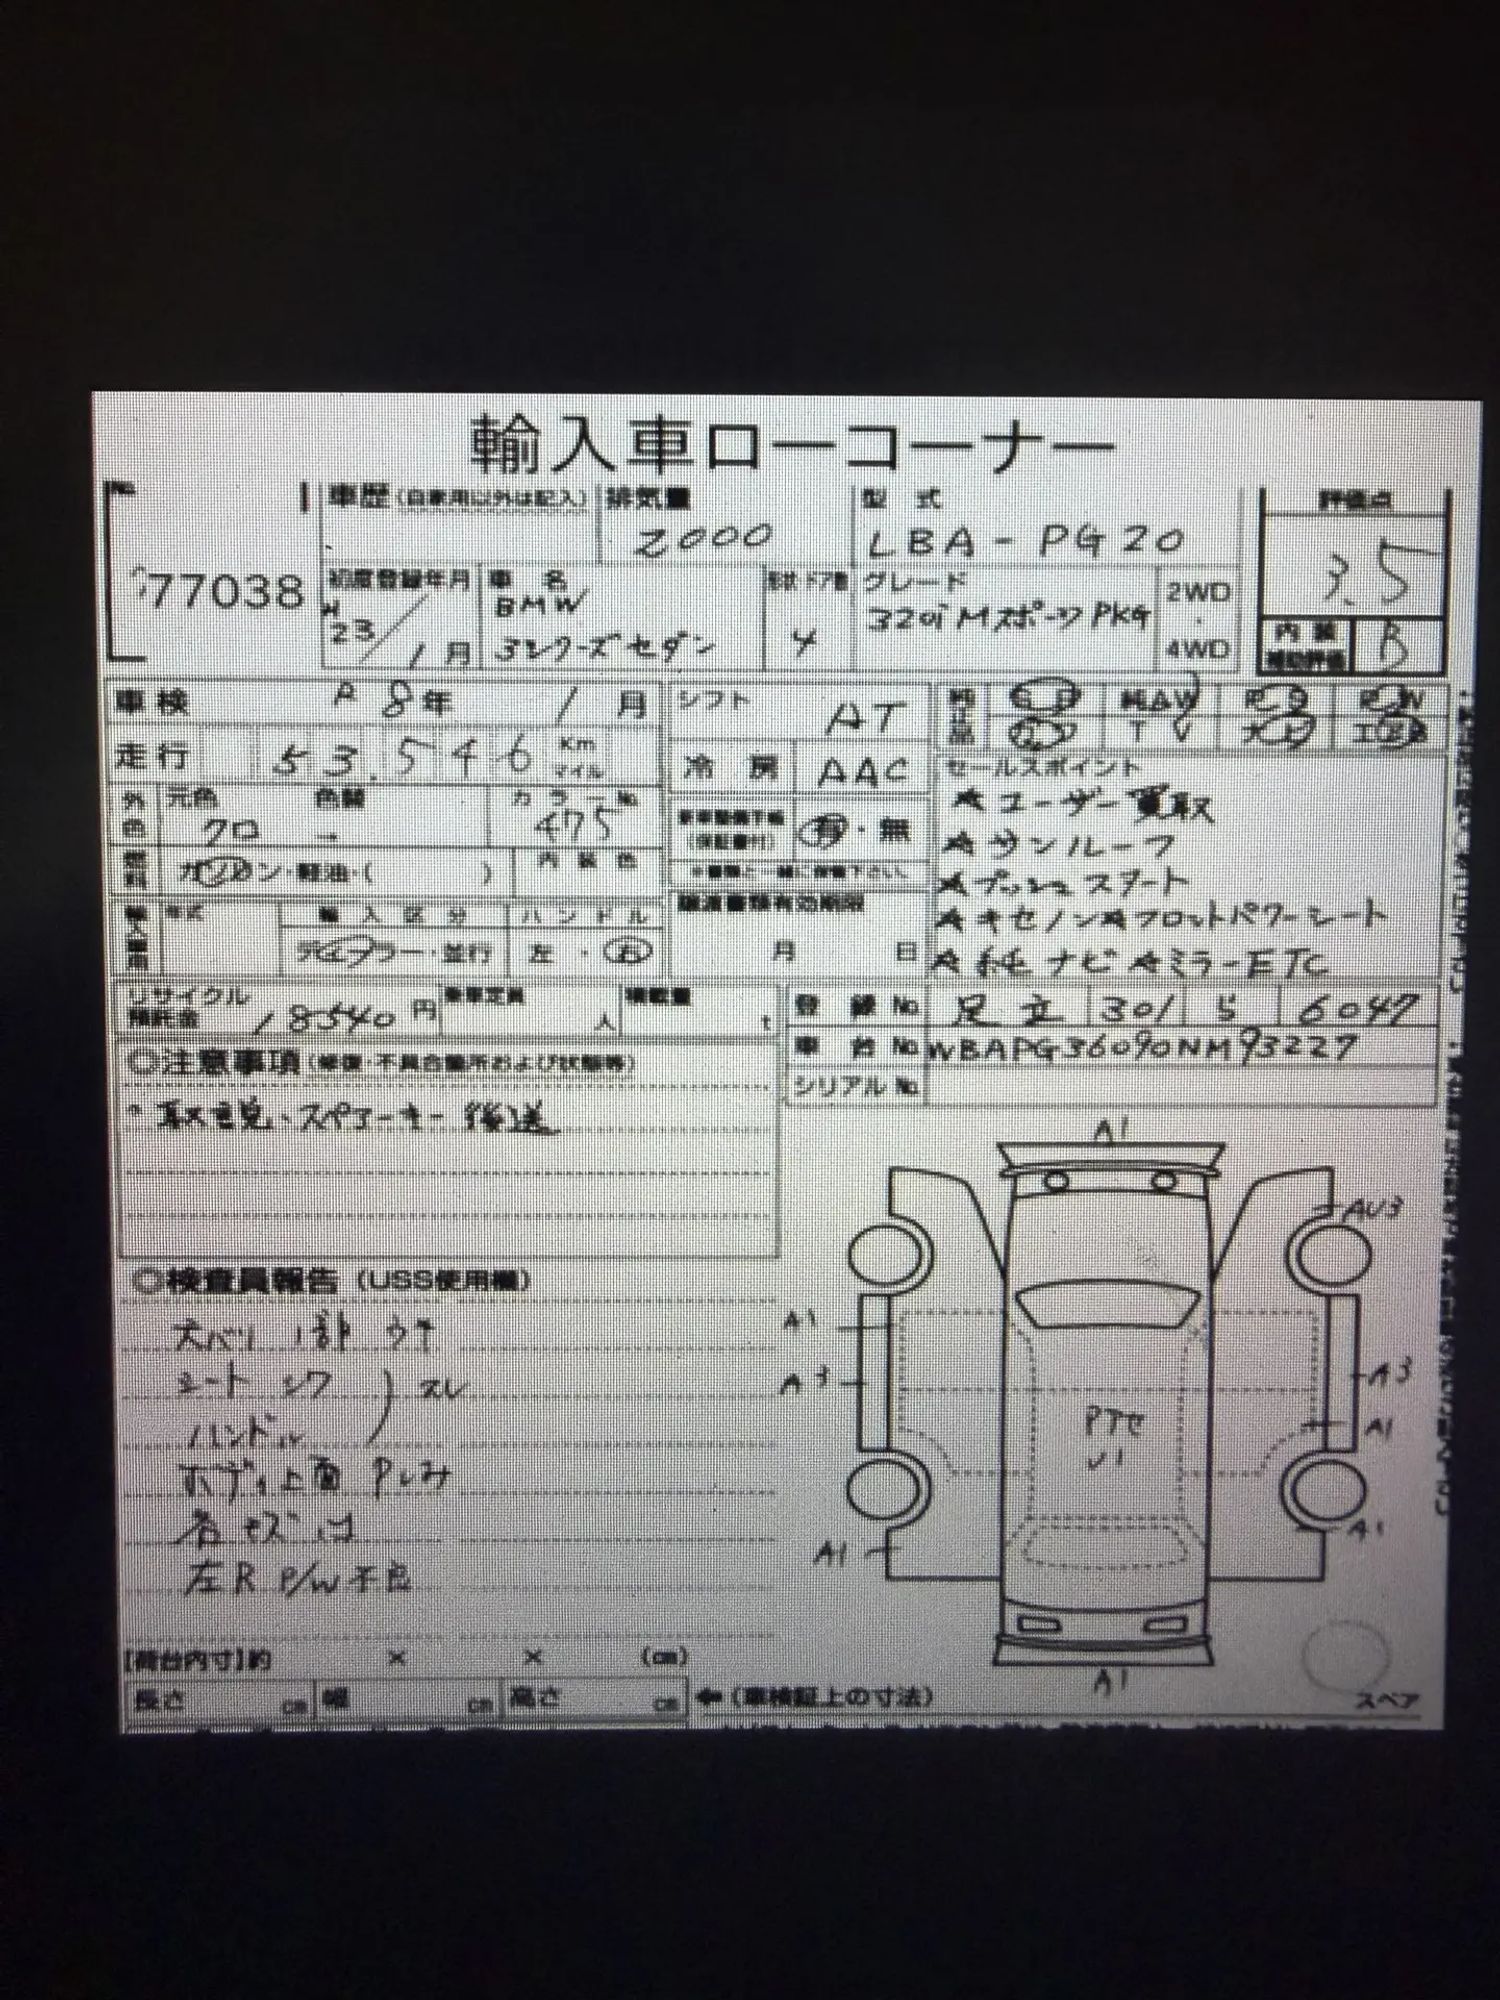 輸入車ローコーナー
車歴(自家用以外は記入) 排気量 型式 評価点
2000 LBA-PG20 3.5
77038
初度登録年月 車名 形状 ドア数 グレード 2WD・4WD
H23/1月 BMW 3シリーズセダン 4 320i MスポーツPKG
内装補助評価 B
車検 R8年 1月 シフト AT
走行 53,546 Km マイル 冷房 AAC
外色 元色 クロ 色替 → カラーNo 475
有・無
燃料 ガソリン・軽油・( ) 内装色
T V
セールスポイント
★ユーザー買取
★サンルーフ
★プッシュスタート
★キセノン★フロントパワーシート
★純ナビ★ミラーETC
年式 輸入区分 ハンドル 譲渡書類有効期限
ディーラー・並行 左・右 月 日
リサイクル預託金 18540円 乗車定員 人 積載量 t
登録No 足立 301 6047
車台No WBAPG36090NM93227
シリアルNo
○注意事項(修復・不具合箇所および状態等)
・取説、スペアーキー後送
○検査員報告(USS使用欄)
シート シワ ) スレ
ハンドル
ボディ上面
左R P/W不良
A1
AU3
A1
A3
A1
A1
A1
A1
[荷台内寸]約 × × (cm)
長さ cm 幅 cm 高さ cm ←(車検証上の寸法)
スペア